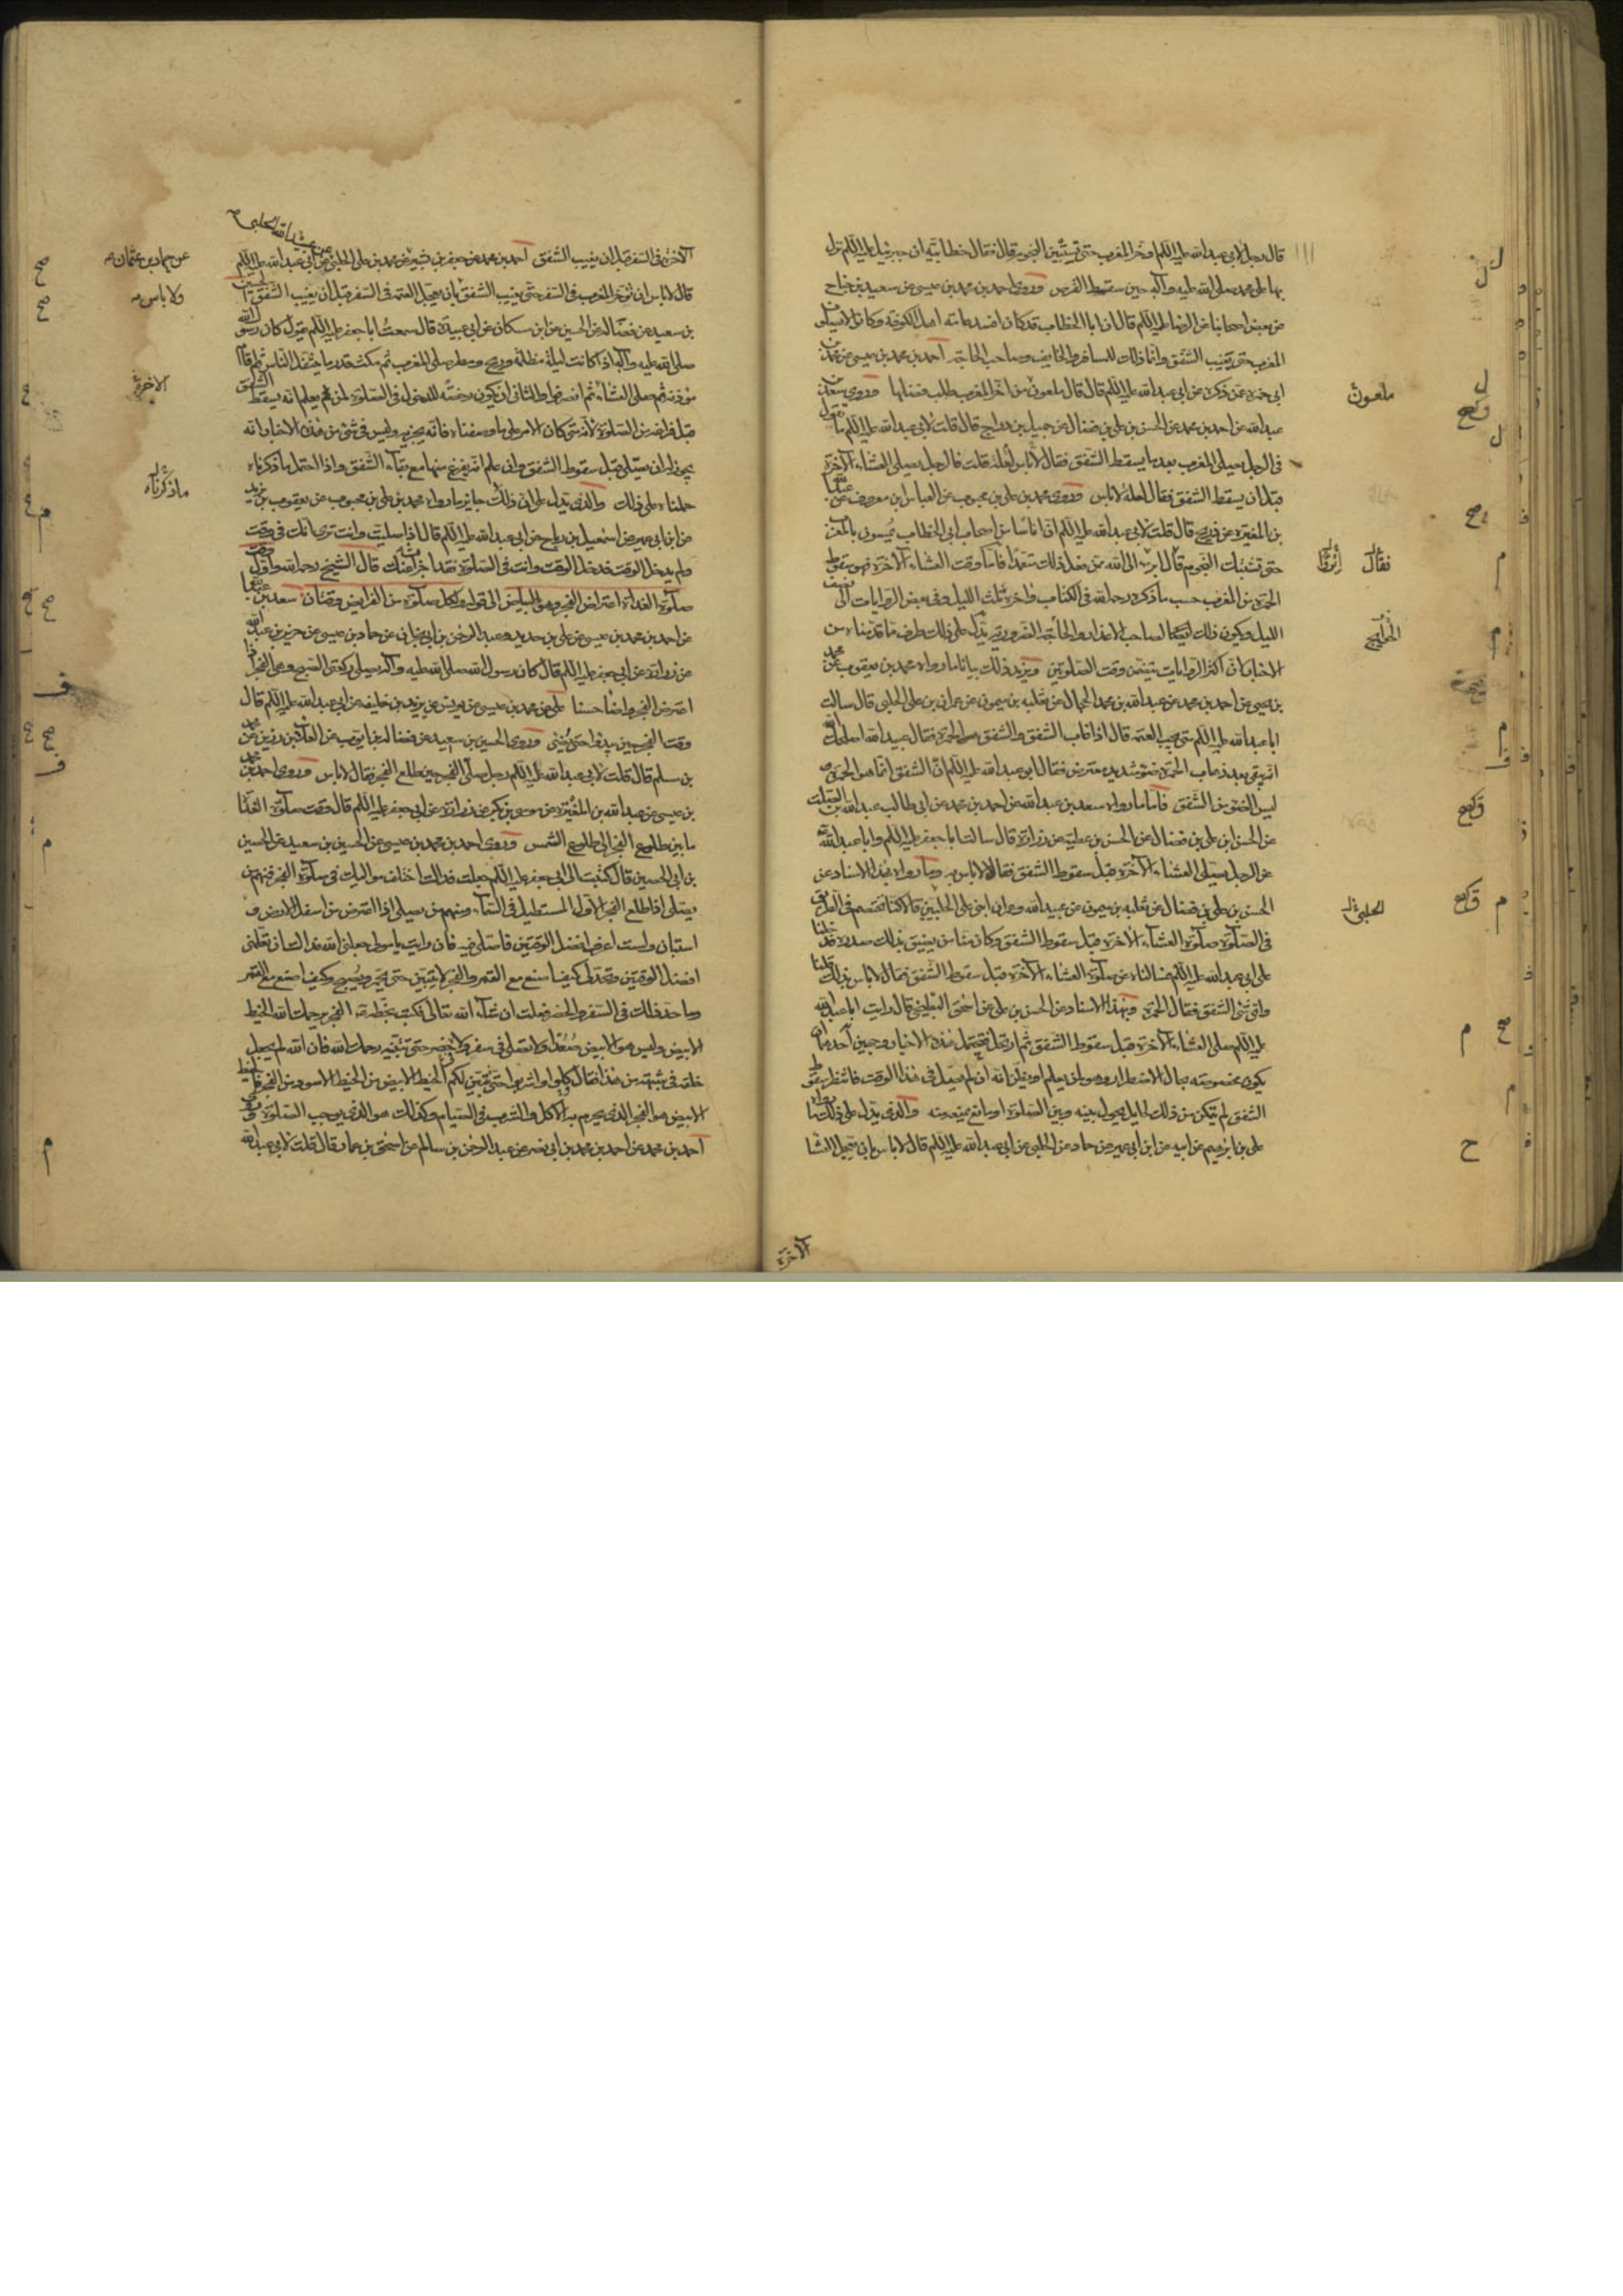 قال رجل لابي عبد الله عليه السلم اؤخر المغرب حتى تستبين النجوم قال فقال خطابيّة ان جبرئيل عليه السلم نزل
بها على محمد صلى الله عليه وآله حين سقط القرص وروى احمد بن محمد بن عيسى عن سعيد بن جناح
عن بعض اصحابنا عن الرضا عليه السلم قال ان ابا الخطاب قد كان افسد عامة اهل الكوفة وكانوا لا يصلون
المغرب حتى يغيب الشفق وانما ذلك للمسافر والخايف ولصاحب الحاجة احمد بن محمد بن عيسى عن محمد بن
ابي حمزة عمن ذكره عن ابي عبد الله عليه السلم قال قال ملعون من اخر المغرب طلب فضلها وروى سعد بن
ملعون
عبد الله عن احمد بن محمد عن الحسن بن علي بن فضال عن جميل بن دراج قال قلت لابي عبد الله عليه السلم ما تقول
في الرجل يصلي المغرب بعد ما يسقط الشفق فقال لعلة لا باس قلت فالرجل يصلي العشاء الآخرة
قبل ان يسقط الشفق فقال لعلة لا باس وروى محمد بن علي بن محبوب عن العباس بن معروف عن عبد الله
بن المغيرة عن ذريح قال قلت لابي عبد الله عليه السلم ان اناسا من اصحاب ابي الخطاب يمسون بالمغرب
حتى تشتبك النجوم قال ابرء الى الله ممن فعل ذلك متعمدا فاما وقت العشاء الآخرة فهو سقوط
فقال
الحمرة من المغرب حسب ما ذكره رحمه الله في الكتاب وآخره ثلث الليل وفي بعض الروايات الى نصف
الليل ويكون ذلك ايضا لصاحب الاعذار والحاجة الضرورية يدل على ذلك طرف مما قدمناه من
الحوائج
الاخبار فان اكثر الروايات يتضمن وقت الصلوتين ويزيد ذلك بيانا ما رواه محمد بن يعقوب عن محمد
بن يحيى عن احمد بن محمد عن عبد الله بن محمد الحجال عن ثعلبة بن ميمون عن عمران بن علي الحلبي قال سالت
ابا عبد الله عليه السلم متى تجب العتمة قال اذا غاب الشفق والشفق الحمرة فقال عبيد الله اصلحك الله
انه يبقى بعد ذهاب الحمرة ضوء شديد معترض فقال ابو عبد الله عليه السلم ان الشفق انما هو الحمرة و
ليس الضوء من الشفق فاما ما رواه سعد بن عبد الله عن احمد بن محمد عن ابي طالب عبد الله بن الصلت
عن الحسن بن علي بن فضال عن الحسن بن عطية عن زرارة قال سالت ابا جعفر عليه السلم وابا عبد الله
عن الرجل يصلي العشاء الآخرة قبل سقوط الشفق فقالا لا باس به وما رواه بهذا الاسناد عن
الحسن بن علي بن فضال عن ثعلبة بن ميمون عن عبيد الله وعمران ابني علي الحلبيين قالا كنا نختصم في الطريق
الحلبي
في الصلوة صلوة العشاء الآخرة قبل سقوط الشفق وكان منا من يضيق بذلك صدره فدخلنا
على ابي عبد الله عليه السلم فسالناه عن صلوة العشاء الآخرة قبل سقوط الشفق فقال لا باس بذلك قلنا
واي شئ الشفق فقال الحمرة وبهذا الاسناد عن الحسن بن علي عن اسحق البطيخي قال رايت ابا عبد الله
عليه السلم صلى العشاء الآخرة قبل سقوط الشفق ثم ارتحل فتحتمل هذه الاخبار وجهين احدهما ان
يكون مخصوصة بحال الاضطرار وهو لمن يعلم او يظن انه ان لم يصل في هذا الوقت فانتظر سقوط
الشفق لم يتمكن من ذلك لحايل يحول بينه وبين الصلوة او مانع يمنعه منه والذي يدل على ذلك ما رواه
علي بن ابراهيم عن ابيه عن ابن ابي عمير عن حماد عن الحلبي عن ابي عبد الله عليه السلم قال لا باس بان تعجل العشا
الآخرة
الآخرة في السفر قبل ان يغيب الشفق احمد بن محمد عن جعفر بن بشير عن محمد بن علي الحلبي عن ابي عبد الله عليه السلم
عن عبيد الله الحلبي
عن حماد بن عثمان
قال لا باس ان تؤخر المغرب في السفر حتى يغيب الشفق بان يعجل العتمة في السفر قبل ان يغيب الشفق الحسين
ولا باس
بن سعيد عن فضالة عن الحسين عن ابن مسكان عن ابي عبيدة قال سمعت ابا جعفر عليه السلم يقول كان رسول الله
صلى الله عليه وآله اذا كانت ليلة مظلمة وريح ومطر صلى المغرب ثم مكث قدر ما يتنفل الناس ثم اقام
مؤذنه ثم صلى العشاء ثم انصرفوا والثاني ان يكون رخصة للدخول في الصلوة لمن يعلم انه يسقط الشفق
الاخرة
قبل فراغه من الصلوة لانه متى كان الامر على ما وصفناه فانه يجزيه وليس في شئ من هذه الاخبار انه
يجوز له ان يصلي قبل سقوط الشفق وان علم انه يفرغ منها مع بقاء الشفق واذا احتمل ما ذكرناه
ما ذكرناه
حملناه على ذلك والذي يدل على ان ذلك جايز ما رواه محمد بن علي بن محبوب عن يعقوب بن يزيد
عن ابن ابي عمير عن اسمعيل بن رباح عن ابي عبد الله عليه السلم قال اذا صليت وانت ترى انك في وقت
ولم يدخل الوقت فدخل الوقت وانت في الصلوة فقد اجزأت عنك قال الشيخ رحمه الله واول وقت
صلوة الغداة اعتراض الفجر وهو البياض الى قوله ولكل صلوة من الفرايض وقتان سعد بن عبد الله
عن احمد بن محمد بن عيسى عن علي بن حديد وعبد الرحمن بن ابي نجران عن حماد بن عيسى عن حريز بن عبد الله
عن زرارة عن ابي جعفر عليه السلم قال كان رسول الله صلى الله عليه وآله يصلي ركعتي الصبح وهي الفجر اذا
اعترض الفجر واضاء حسنا علي عن محمد بن عيسى عن يونس عن يزيد بن خليفة عن ابي عبد الله عليه السلم قال
وقت الفجر حين يبدو حتى يضئ وروى الحسين بن سعيد عن فضالة بن ايوب عن العلاء بن رزين عن محمد
بن مسلم قال قلت لابي عبد الله عليه السلم رجل صلى الفجر حين طلع الفجر فقال لا باس وروى احمد بن محمد
بن عيسى عن عبد الله بن المغيرة عن موسى بن بكر عن زرارة عن ابي جعفر عليه السلم قال وقت صلوة الغداة
ما بين طلوع الفجر الى طلوع الشمس وروى احمد بن محمد بن عيسى عن الحسين بن سعيد عن الحصين
بن ابي الحصين قال كتبت الى ابي جعفر عليه السلم جعلت فداك اختلف مواليك في صلوة الفجر فمنهم من
يصلي اذا طلع الفجر الاول المستطيل في السماء ومنهم من يصلي اذا اعترض من اسفل الارض و
استبان ولست اعرف افضل الوقتين فاصلي فيه فان رايت يا مولاي جعلني الله فداك ان تعلمني
افضل الوقتين وتحد لي كيف اصنع مع القمر والفجر لا يتبين حتى يحمر ويصبح وكيف اصنع مع القمر
وما حد ذلك في السفر والحضر فعلت ان شاء الله تعالى فكتب بخطه عليه السلم الفجر يرحمك الله الخيط
الابيض وليس هو الابيض صعدا ولا تصل في سفر ولا حضر حتى تتبينه رحمك الله فان الله لم يجعل
خلقه في شبهة من هذا فقال كلوا واشربوا حتى يتبين لكم الخيط الابيض من الخيط الاسود من الفجر فالخيط
الابيض هو الفجر الذي يحرم به الاكل والشرب في الصيام وكذلك هو الذي يوجب الصلوة وروى
احمد بن محمد عن احمد بن محمد بن ابي نصر عن عبد الرحمن بن سالم عن اسحق بن عمار قال قلت لابي عبد الله